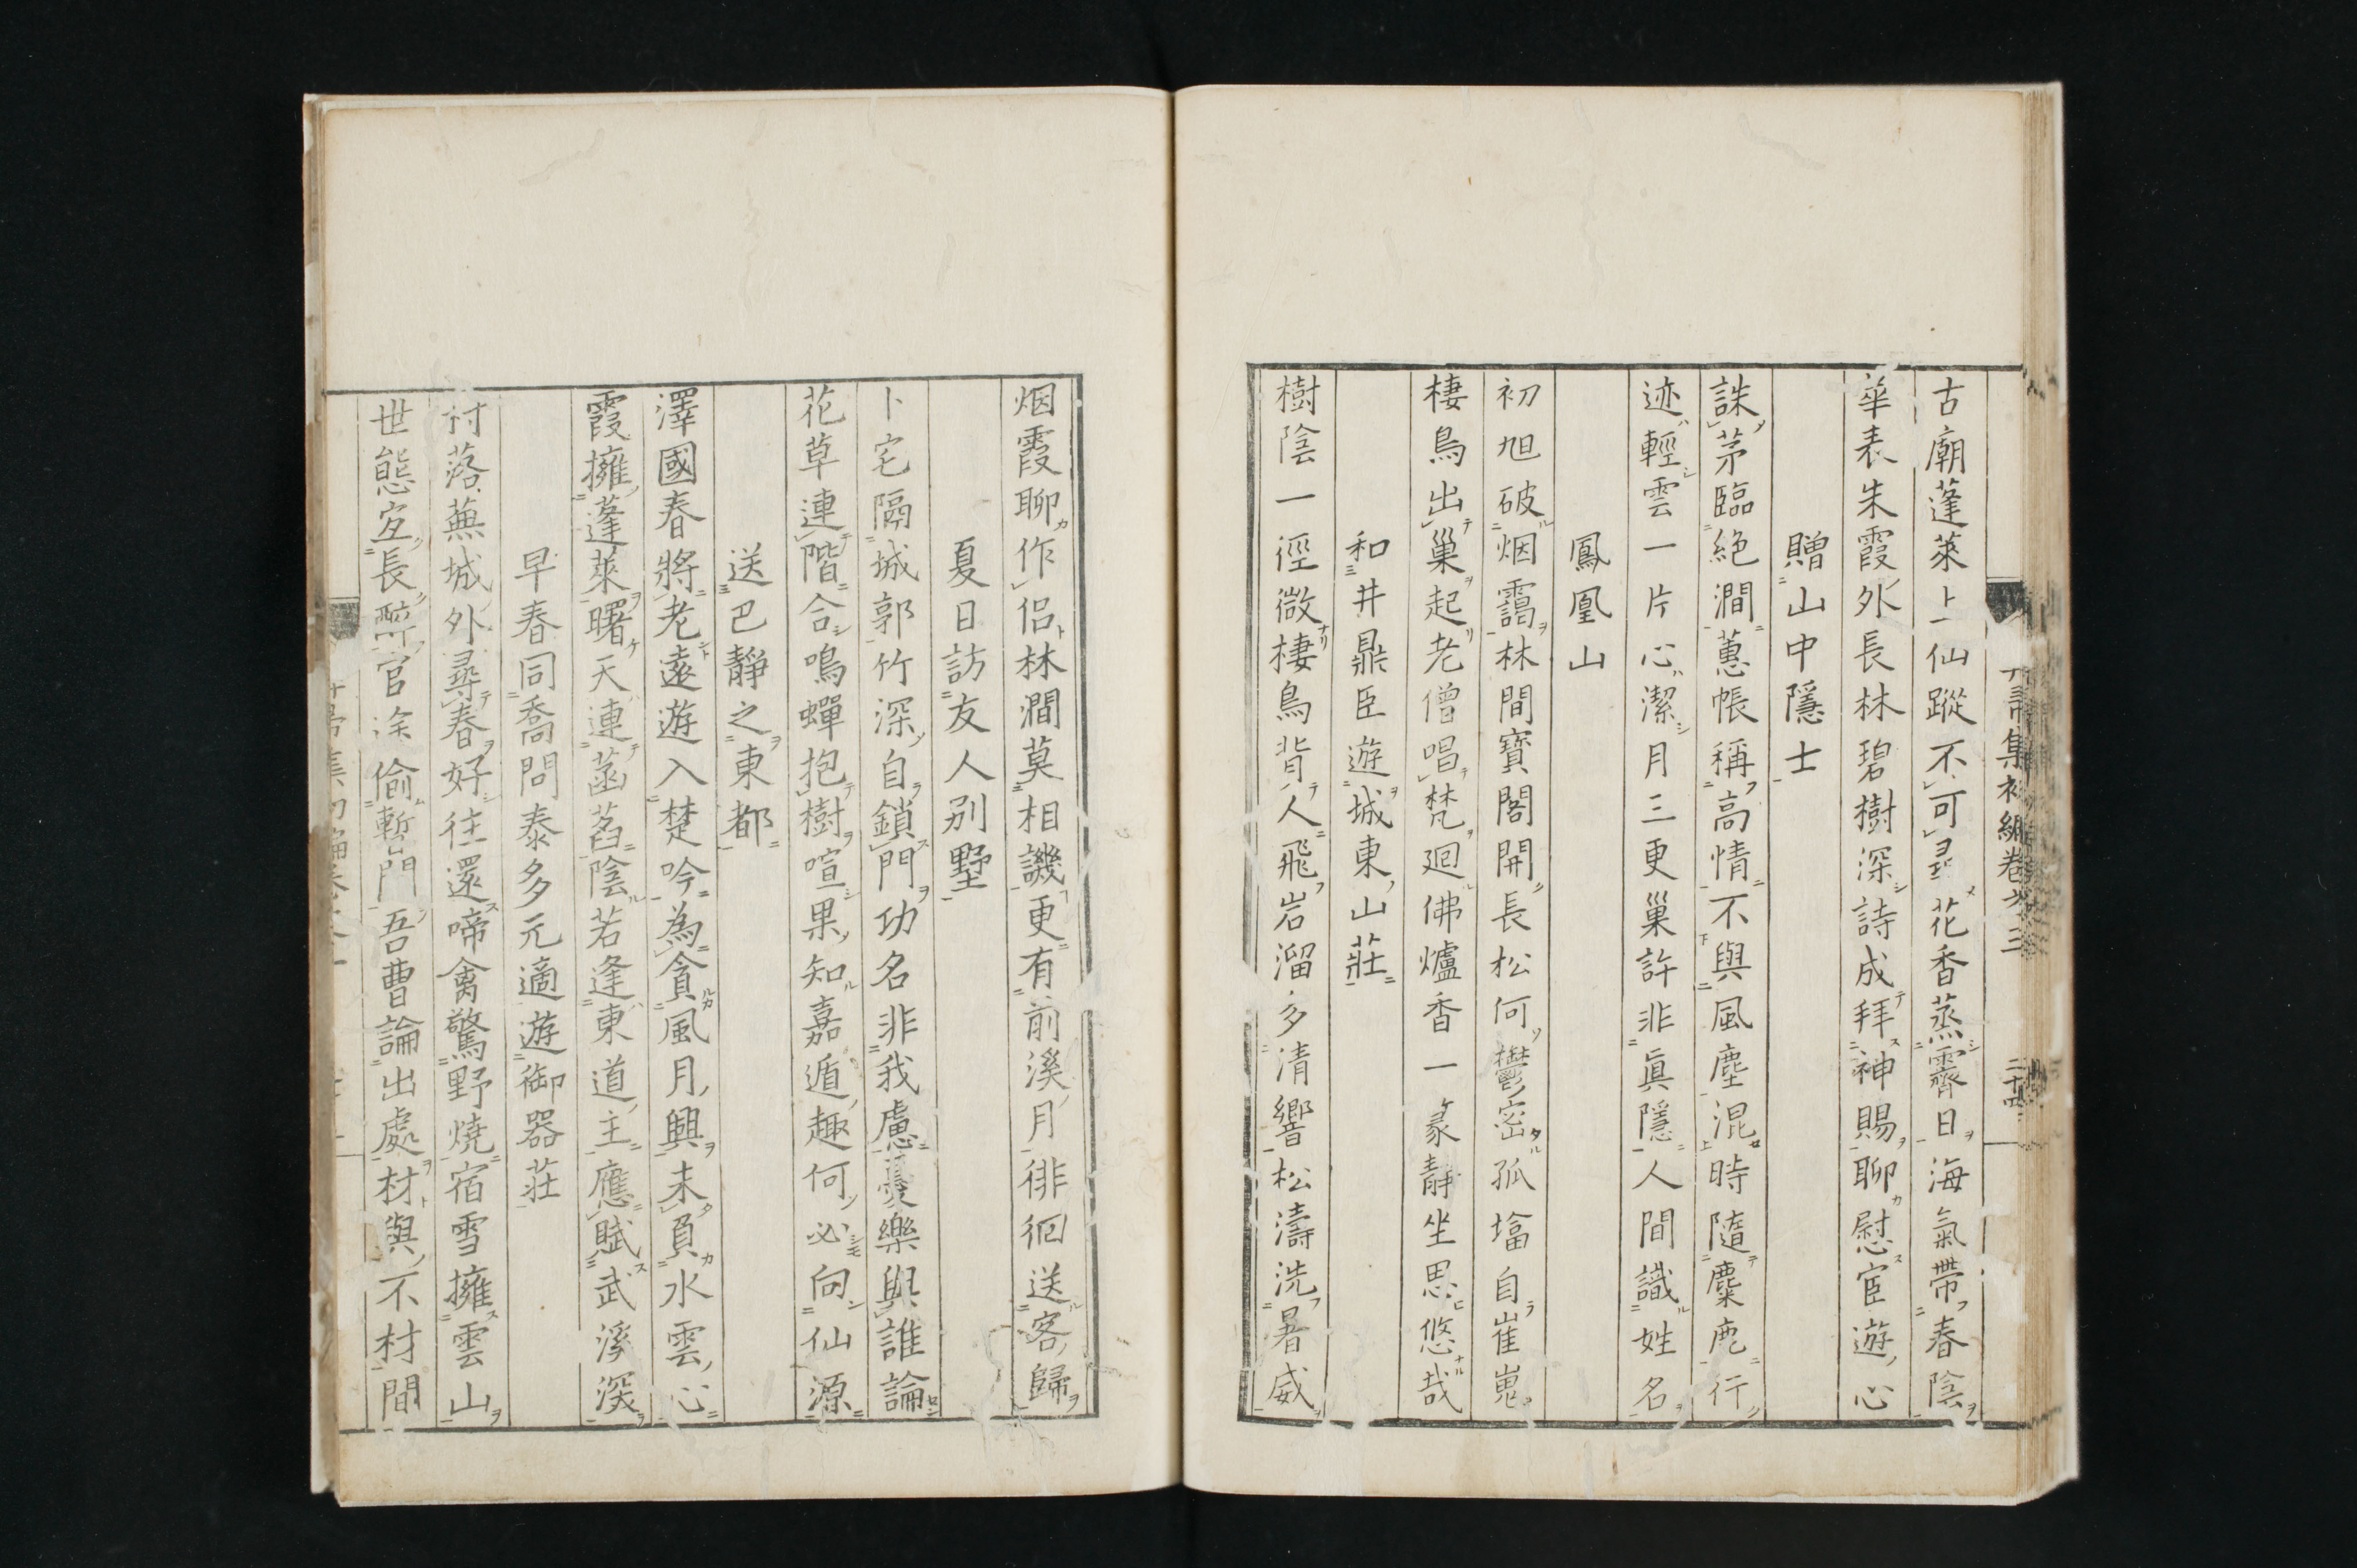 古廟蓬萊上仙蹤不可尋花香蒸霽日海氣帶春陰
華表朱霞外長林碧樹深詩成拜神賜聊慰宦遊心
贈山中隱士
誅茅臨絕澗蕙帳稱高情不與風塵混時隨麋鹿行
迹輕雲一片心潔月三更巢許非眞隱人間識姓名
鳳凰山
初旭破烟靄林間寶閣開長松何鬱密孤塔自崔嵬
棲鳥出巢起老僧唱梵廻佛爐香一篆靜坐思悠哉
和井鼎臣遊城東山莊
樹陰一徑微棲鳥背人飛岩溜多清響松濤洗暑威
烟霞聊作侶林澗莫相譏更有前溪月徘徊送客歸
夏日訪友人別墅
卜宅隔城郭竹深自鎖門功名非我慮憂樂與誰論
花草連階合鳴蟬抱樹喧果知嘉遁趣何必向仙源
送巴靜之東都
澤國春將老遠遊入楚吟為貪風月興未負水雲心
霞擁蓬萊曙天連菡萏陰若逢東道主應賦武溪深
早春同喬問泰多元適遊御器莊
村落蕪城外尋春好往還啼禽驚野燒宿雪擁雲山
世態宜長醉官途偷暫門吾曹論出處材與不材間
集初編卷之三
二十四